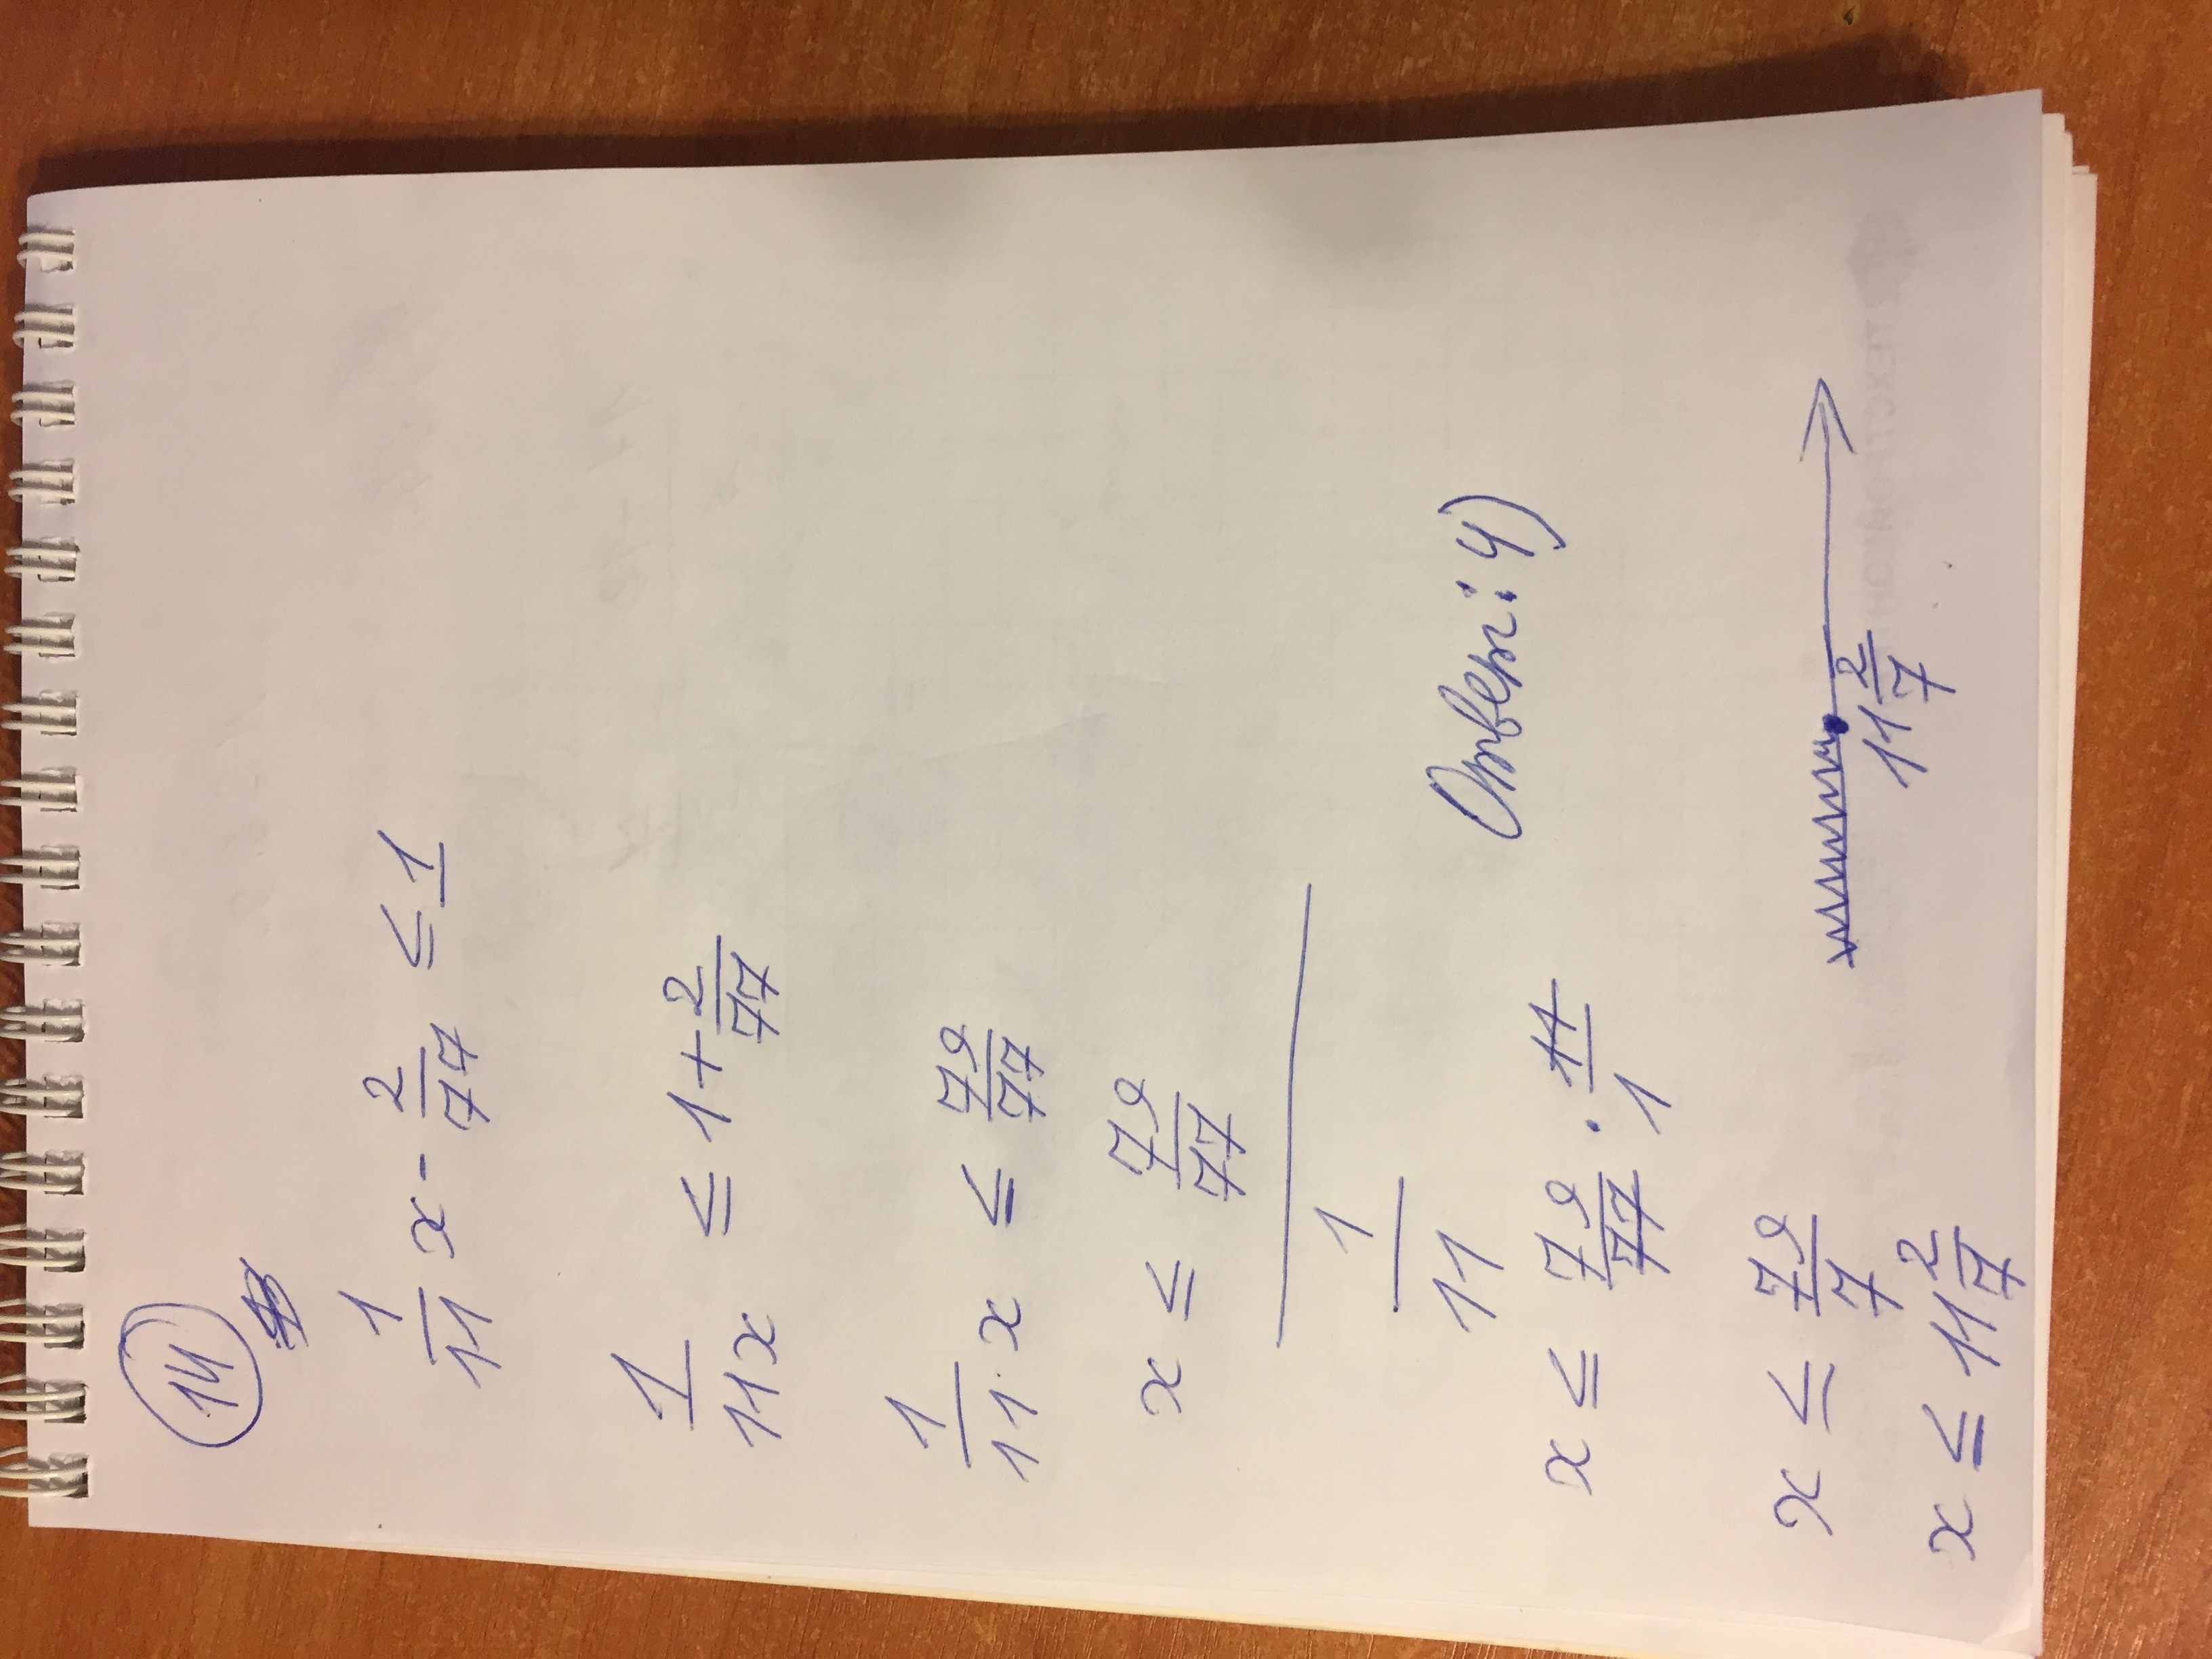 14
1/11 x - 2/77 ≤ 1
1/11x ≤ 1 + 2/77
1/11 · x ≤ 79/77
x ≤ 79/77
1/11
x ≤ 79/77 · 11/1
Ответ: 4)
x ≤ 79/7
x ≤ 11 2/7
11 2/7